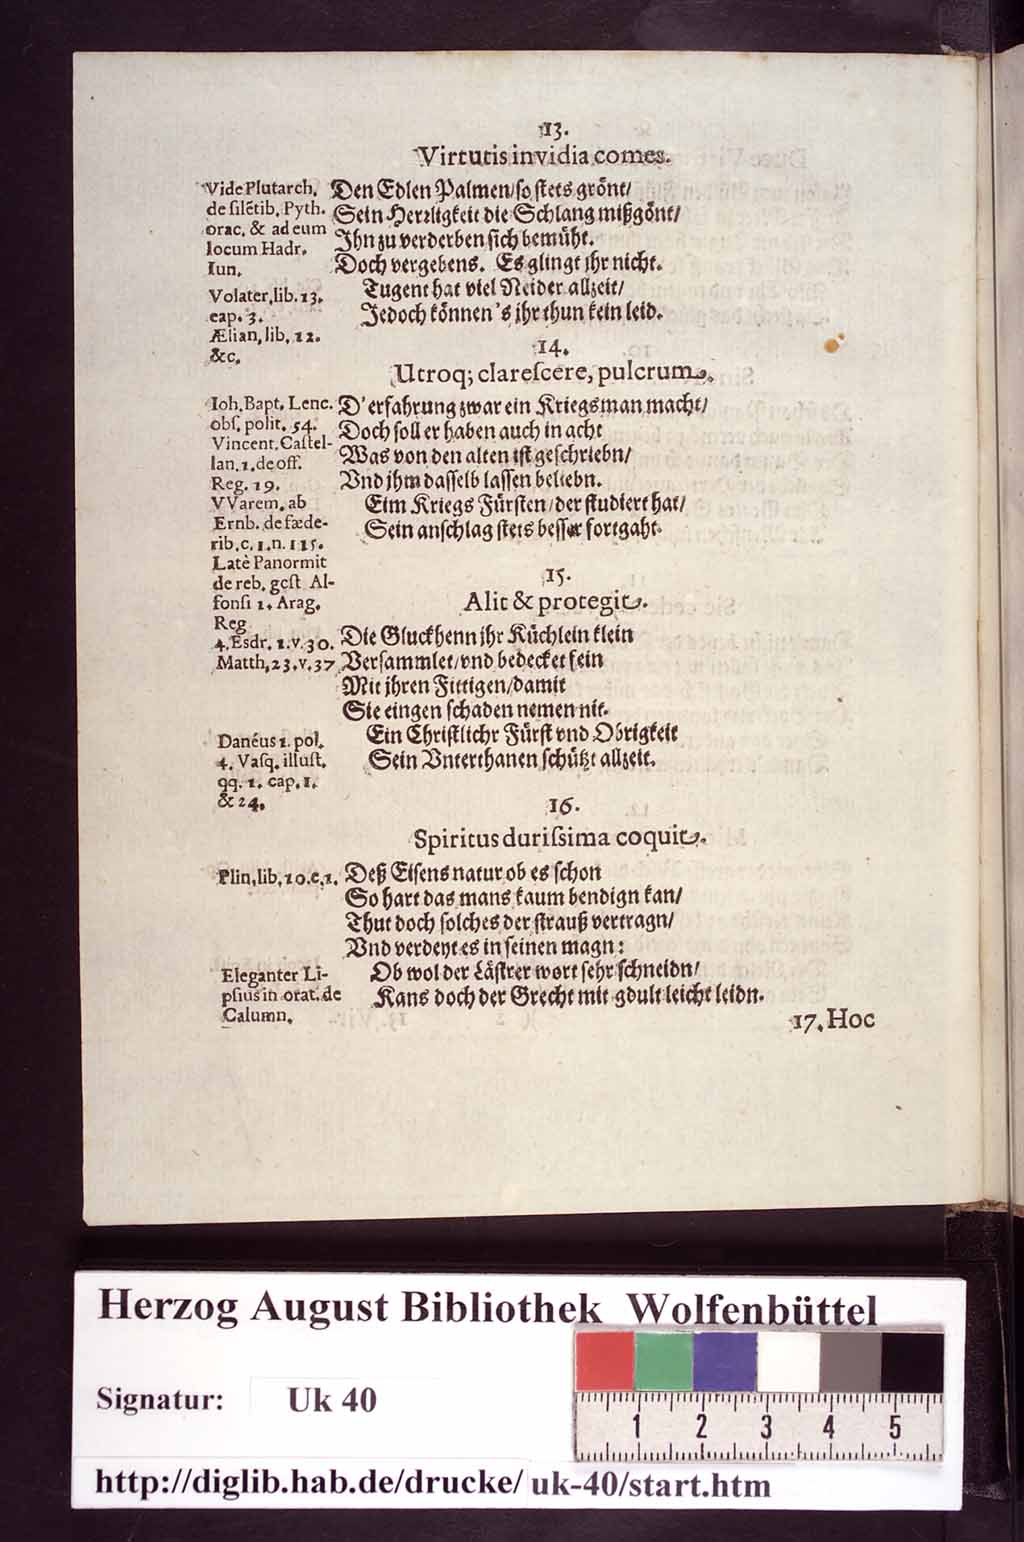 13.
Virtutis invidia comes.
Vide Plutarch.
de silẽtib. Pyth.
orac. & ad eum
locum Hadr.
Iun.
Volater, lib. 13.
cap. 3.
Ælian, lib. 12.
&c.
Den Edlen Palmen/so stets grönt/
Sein Herrligkeit die Schlang mißgönt/
Ihn zu verderben sich bemüht.
Doch vergebens. Es glingt jhr nicht.
Tugent hat viel Neider allzeit/
Jedoch können's jhr thun kein leid.
14.
Utroq; clarescere, pulcrum.
Ioh. Bapt. Lenc.
obs. polit. 54.
Vincent. Castel-
lan. 1. de off.
Reg. 19.
VVarem. ab
Ernb. de fæde-
rib. c. 1. n. 115.
Latè Panormit
de reb. gest Al-
fonsi 1. Arag.
Reg
D'erfahrung zwar ein Kriegsman macht/
Doch soll er haben auch in acht
Was von den alten ist geschriebn/
Vnd jhm dasselb lassen beliebn.
Eim Kriegs Fürsten/der studiert hat/
Sein anschlag stets besser fortgaht.
15.
Alit & protegit.
4. Esdr. 1. v. 30.
Matth, 23. v. 37
Danéus 1. pol.
4. Vasq. illust.
qq. 1. cap. 1.
& 24.
Die Gluckhenn jhr Küchlein klein
Versammlet/vnd bedecket fein
Mit jhren Fittigen/damit
Sie eingen schaden nemen nit.
Ein Christlichr Fürst vnd Obrigkeit
Sein Vnterthanen schützt allzeit.
16.
Spiritus durissima coquit.
Plin, lib, 10. c, 1.
Eleganter Li-
psius in orat. de
Calumn.
Deß Eisens natur ob es schon
So hart das mans kaum bendign kan/
Thut doch solches der strauß vertragn/
Vnd verdeyt es in seinen magn:
Ob wol der Lästrer wort sehr schneidn/
Kans doch der Grecht mit gdult leicht leidn.
17. Hoc
Herzog August Bibliothek Wolfenbüttel
Signatur: Uk 40
1 2 3 4 5
http://diglib.hab.de/drucke/ uk-40/start.htm